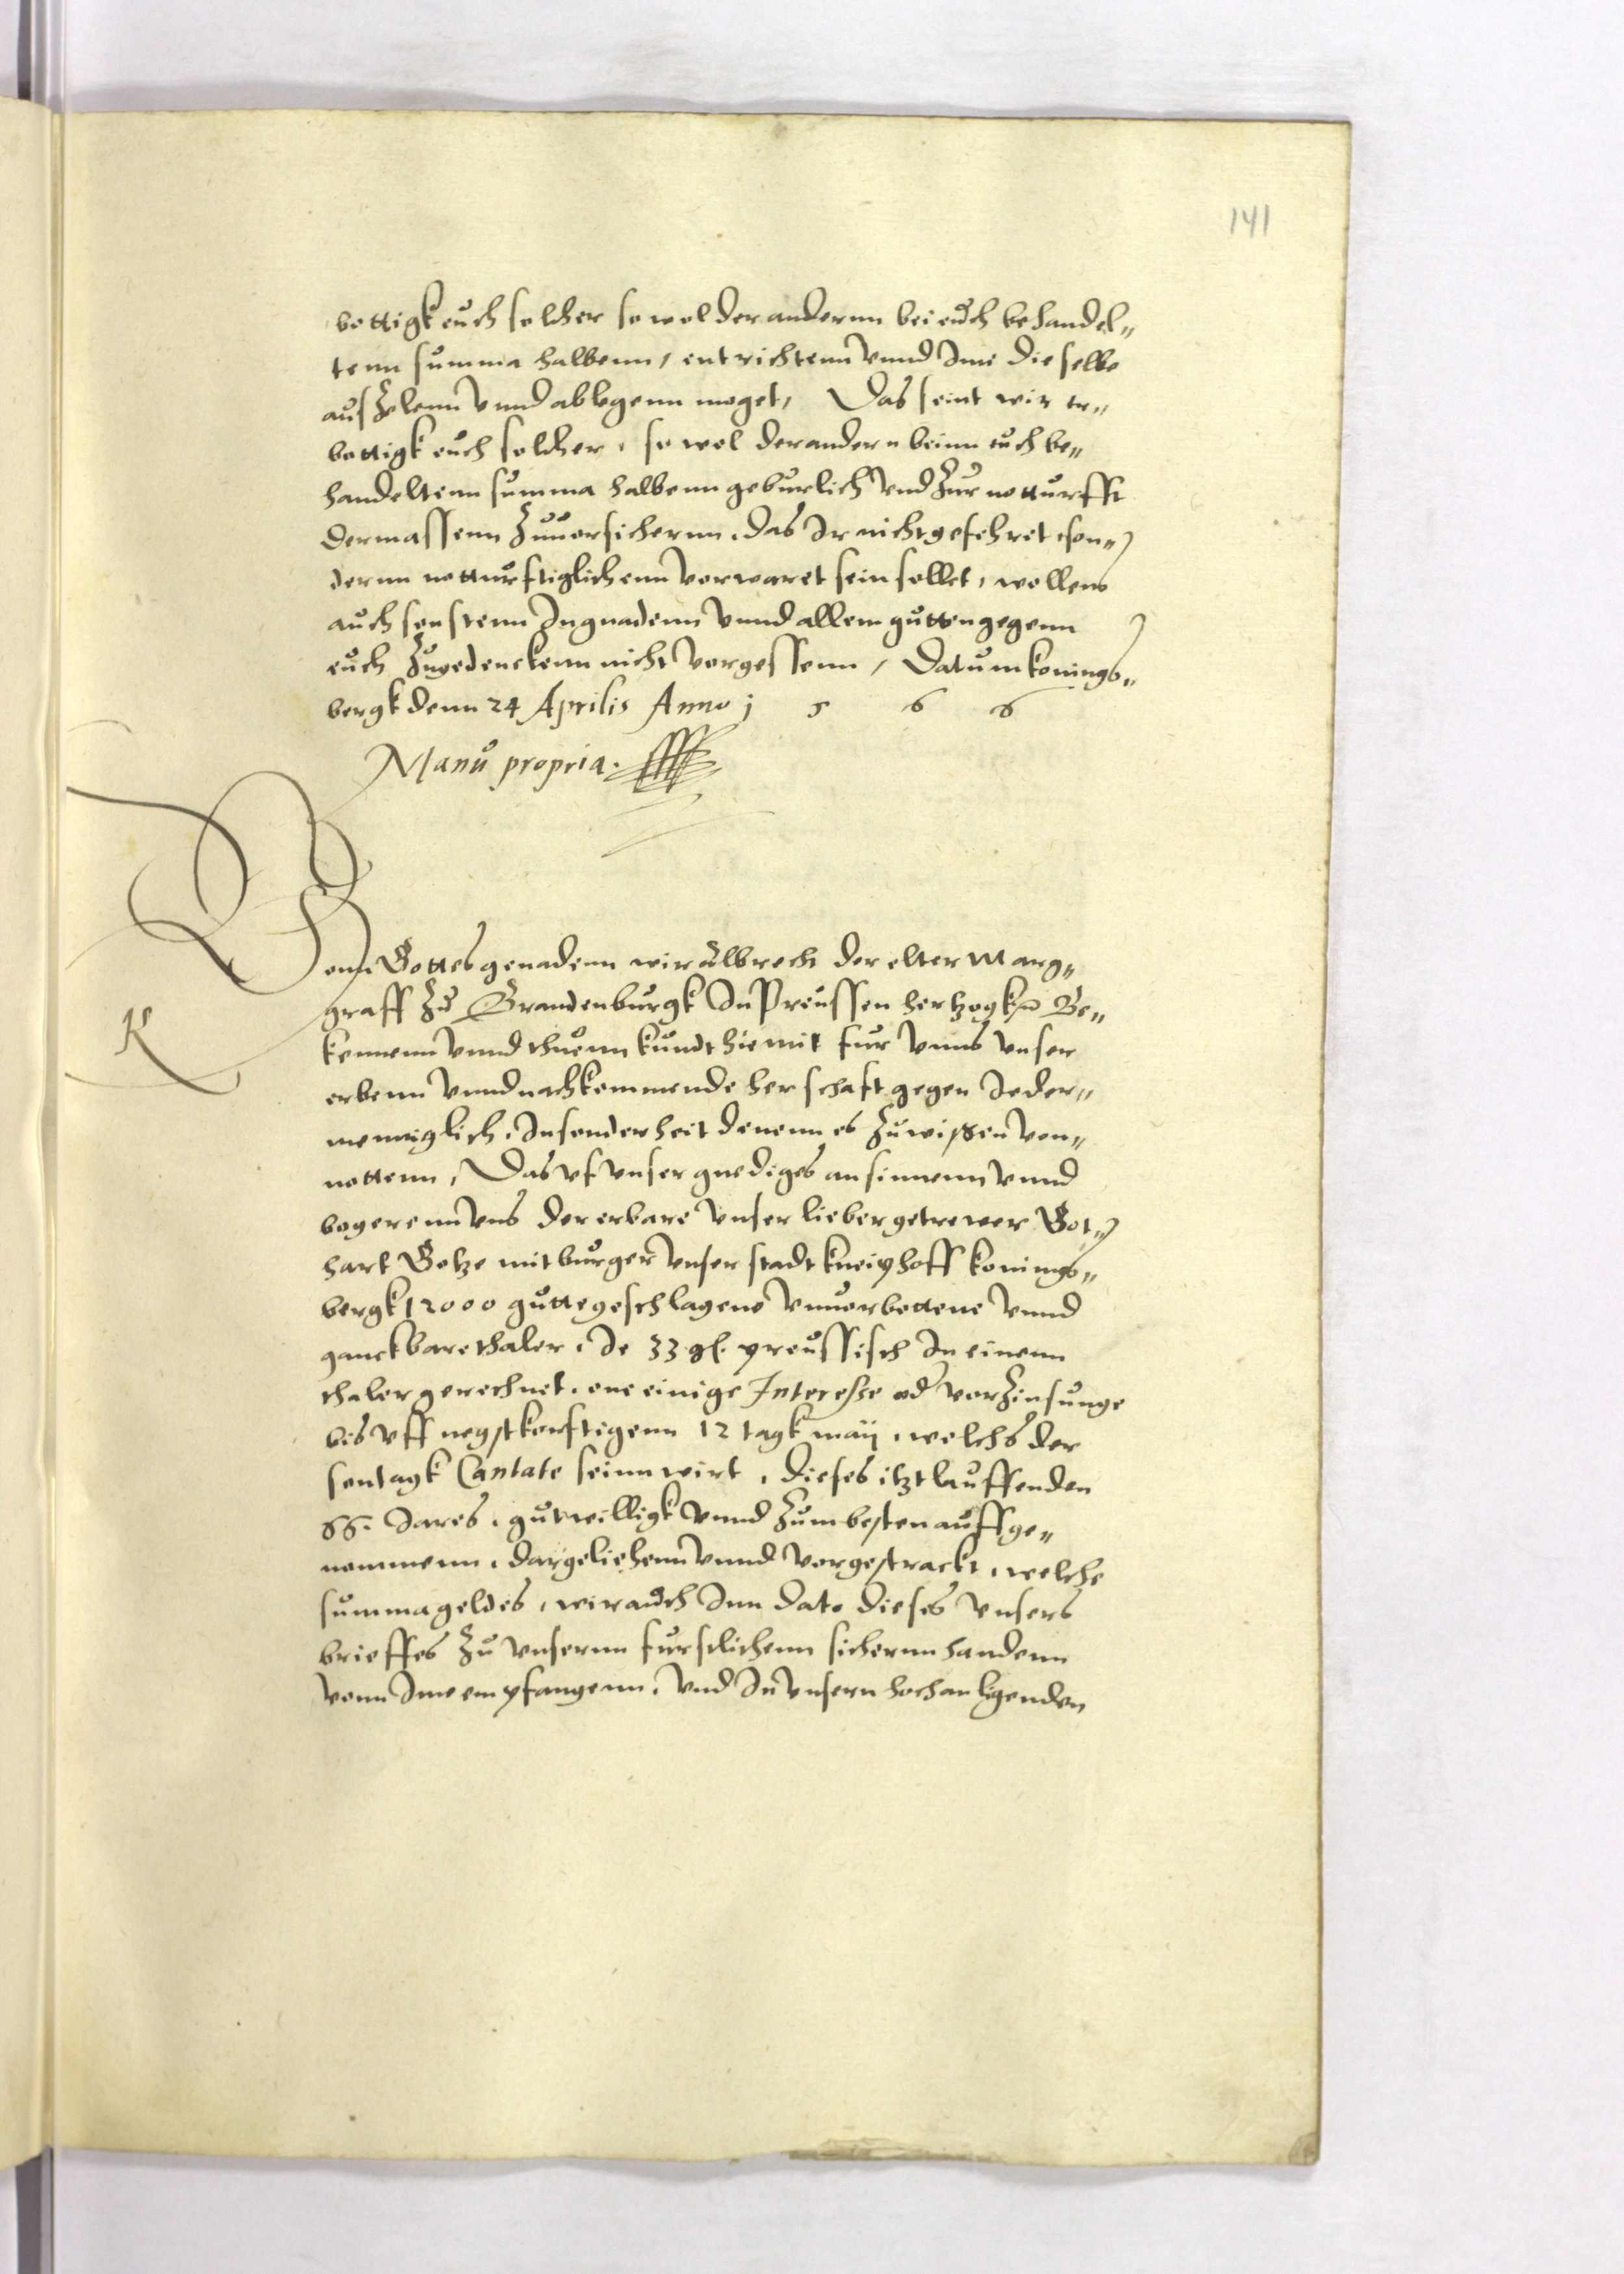 141
bottigk euch solcher so wol der andernn bei euch behandel„
tenn summa halbenn / entrichtenn vnnd Ime dieselbe
auszelenn vnnd ablegenn moget, Das seint wir er„
bottigk euch solcher, so wol der andern beinn euch be„
handeltenn summa halbenn geburlich vnd zur notturfft
dermassenn zuuorsichernn, das Ir nicht gefehret son„
dernn notturftiglichenn vorwaret sein sollet, wollens
auch sonstenn In gnadenn vnnd allem gutten gegenn
euch zugedenckenn nicht vorgessenn / Datum konings„
bergk denn 24 Aprilis Anno j 5 6 6
Manu propria.
Vonn Gottes genadenn wir Albrech der elter Marg„
graff zu Brandenburgk In Preussen hertzogk Be„
kennenn vnnd thuenn kundt hiemit fur vnns vnser
K
erbenn vnnd nachkommende herschaft gegen Ieder„
menniglich, Insonderheit denenn es zuwissen von„
nottenn, Das vf vnser gnediges ansinnenn vnnd
begerenn vns der erbare vnser lieber getrewer Got„
hart Gotze mitburger vnser stadt kneiphoff konings„
bergk 12000 gutte geschlagene vnuorbottene vnnd
ganckbare thaler, Ie 33 gl. preussisch In einenn
thaler gerechnet, one einige Interesse od vorzinsunge
bis vff negstkonftigenn 12 tagk maij, welchs der
sontagk Cantate seinn wirt, dieses itzt lauffenden
66. Iares, gutwilligk vnnd zum besten auffge„
nommenn, dargeliehenn vnnd vorgestrackt, welche
summa geldes, wir auch Inn dato dieses vnsers
brieffes zu vnsernn furstlichenn sichernn handenn
vonn Ime empfangenn, vnd In vnsern hochanligenden